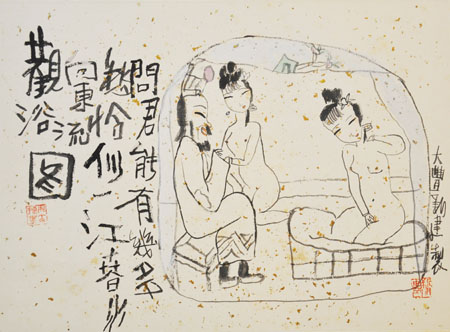 問君能有幾多
愁恰似一江春水
向東流
觀浴图
大豐新建製